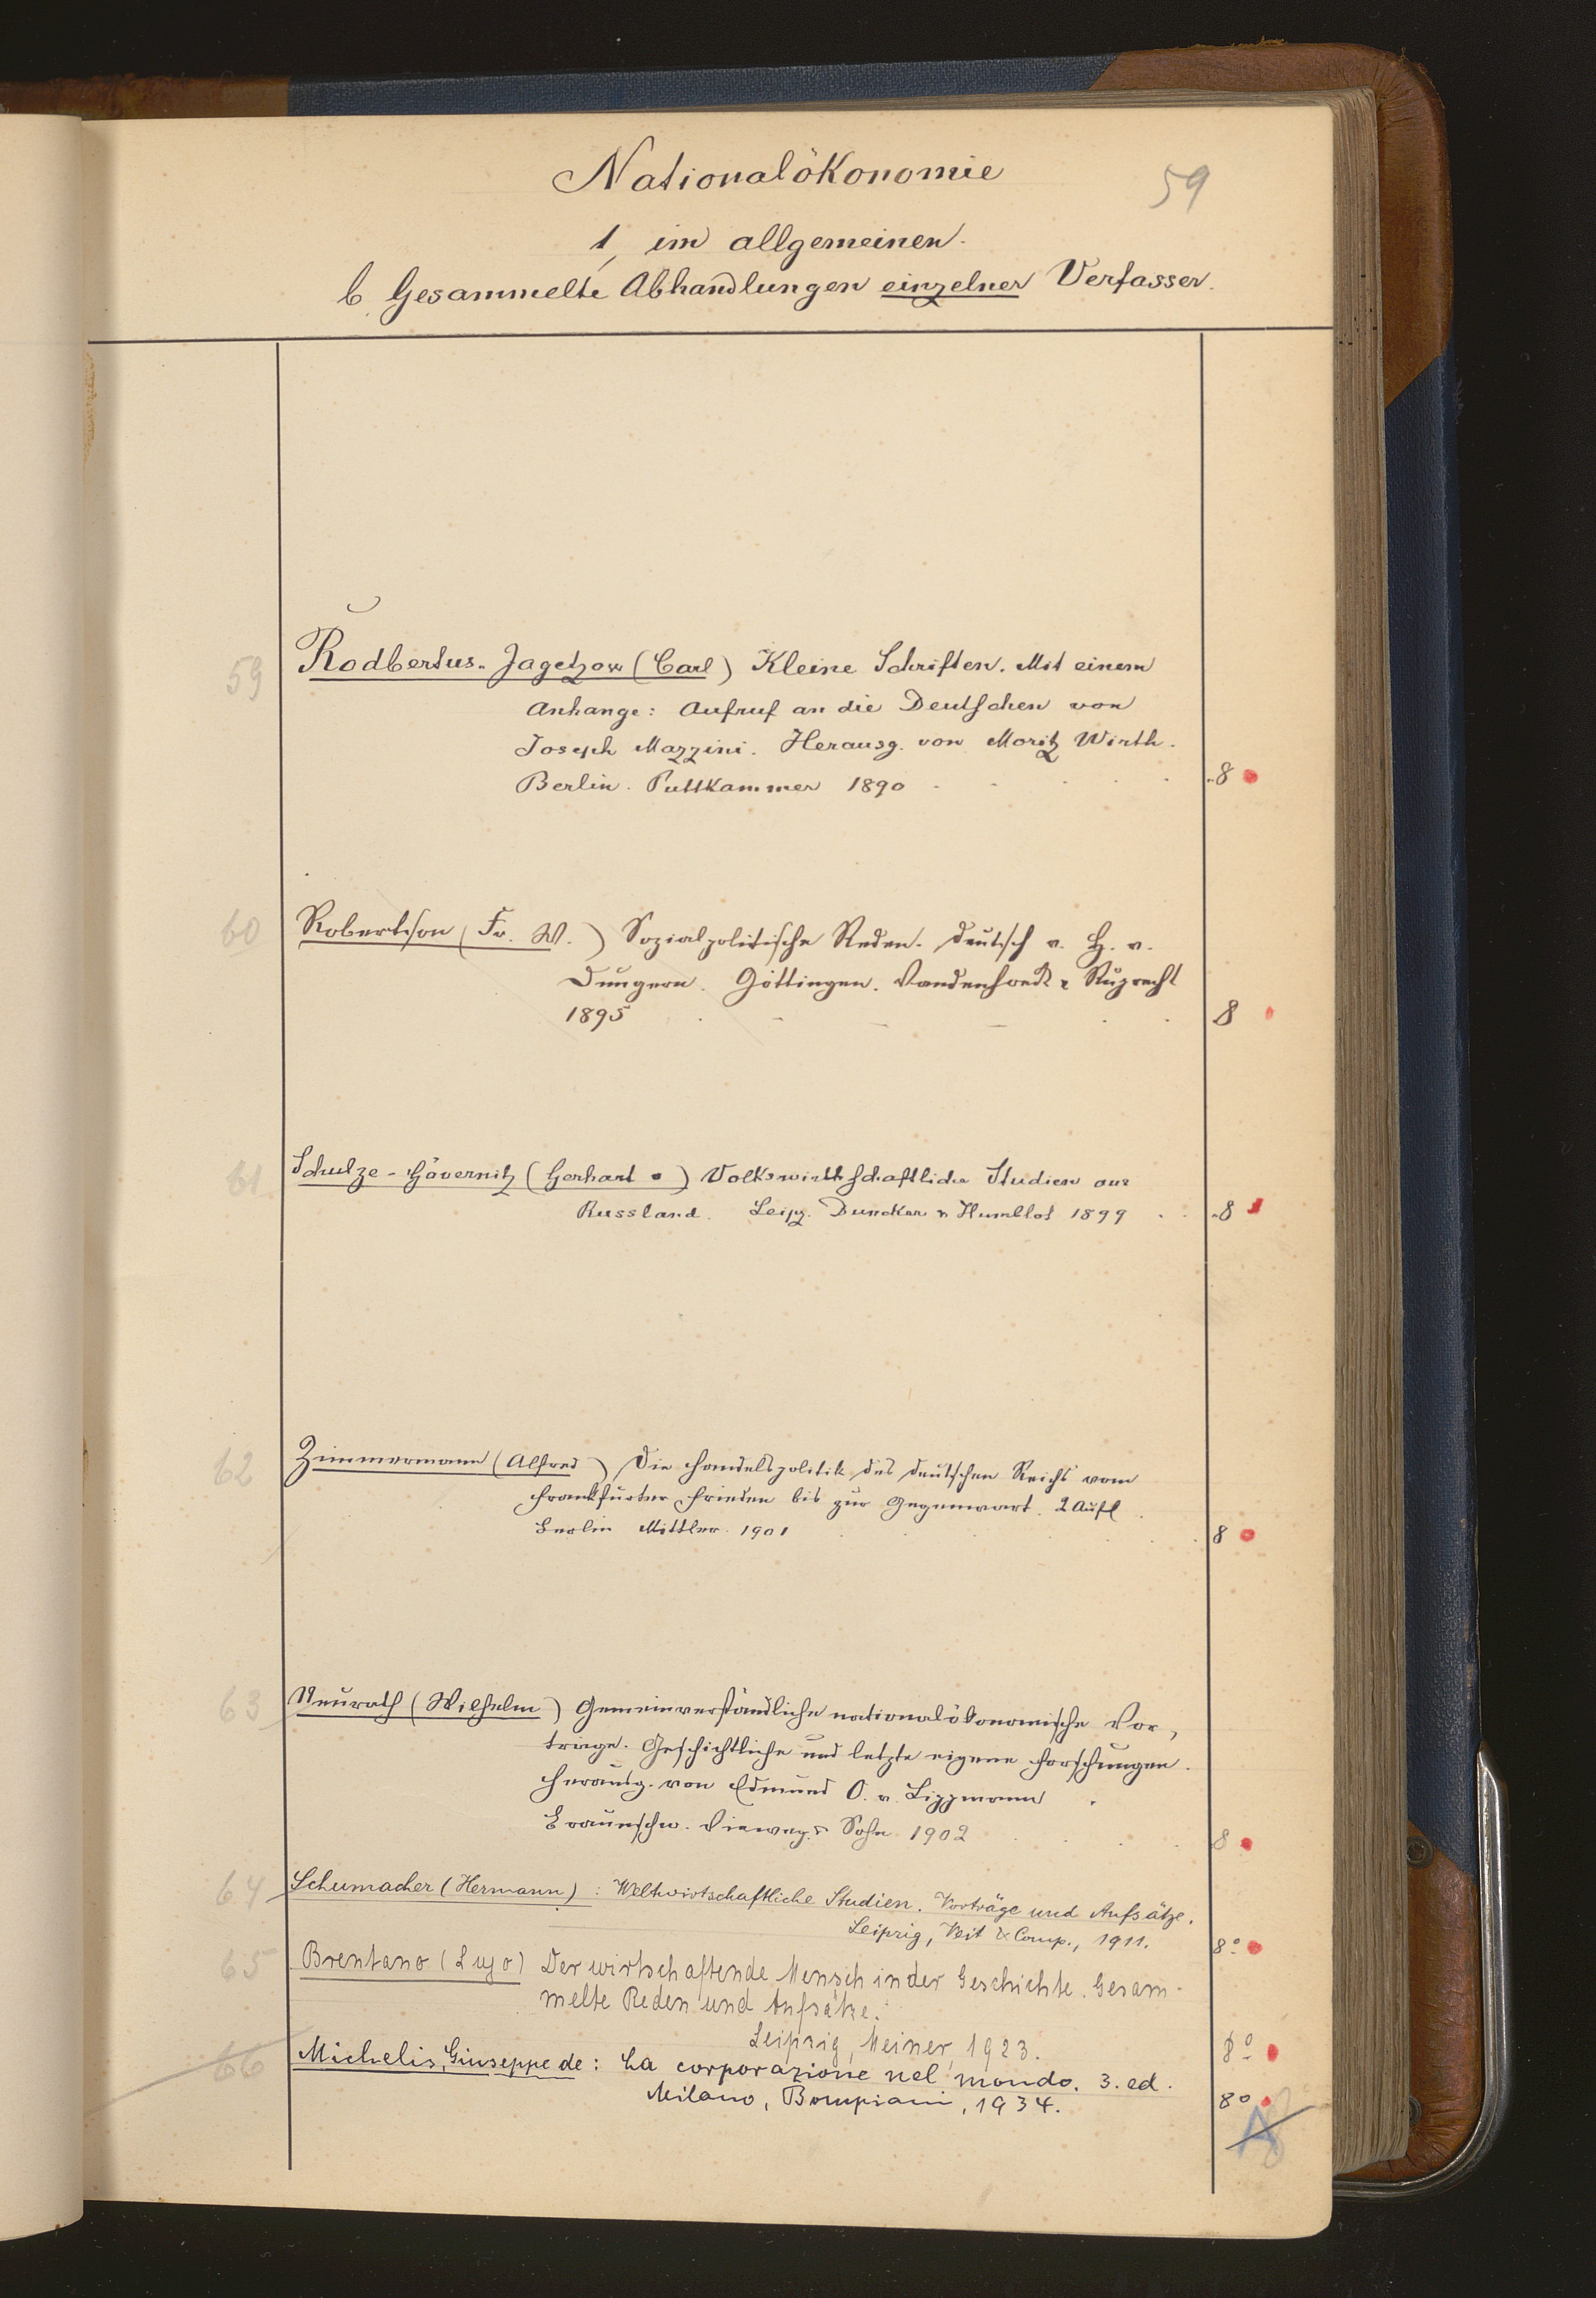 Nationalökonomie
59
1, im allgemeinen.
b. Gesammelte Abhandlungen einzelner Verfasser.
59 Rodbertus-Jagetzow (Carl) Kleine Schriften. Mit einem
Anhange: Aufruf an die Deutschen von
Joseph Mazzini. Herausg. von Moritz Wirth.
Berlin. Puttkammer 1890 8
60 Robertson (Fr. W.) Sozialpolitische Reden. Deutsch v. H. v.
Dungern. Göttingen. Vandenhoeck & Ruprecht
1895 8
61 Schulze-Gävernitz (Gerhart) Volkswirthschaftliche Studien aus
Russland. Leipz. Duncker & Humblot 1899 8
62 Zimmermann (Alfred) Die Handelspolitik des deutschen Reichs vom
Frankfurter Frieden bis zur Gegenwart. 2 Aufl.
Berlin Mittler 1901 8
63 Neurath (Wilhelm) Gemeinverständliche nationalökonomische Vor-
träge. Geschichtliche und letzte eigene Forschungen.
Herausg. von Edmund O. v. Lippmann
Braunschw. Vieweg & Sohn 1902 8
64 Schumacher (Hermann): Weltwirtschaftliche Studien. Vorträge und Aufsätze.
Leipzig, Veit & Comp., 1911. 8°
65 Brentano (Lujo) Der wirtschaftende Mensch in der Geschichte. Gesam-
melte Reden und Aufsätze.
Leipzig, Meiner, 1923. 8°
66 Michelis, Giuseppe de: La corporazione nel mondo. 3. ed.
Milano, Bompiani, 1934. 8°
A